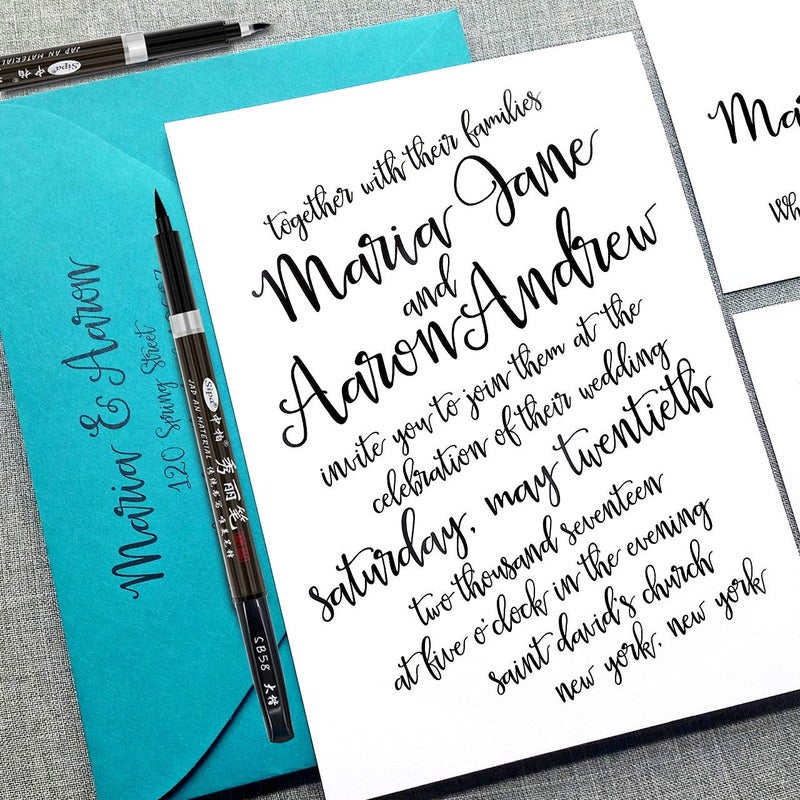 together with their families
Maria Jane
and
Aaron Andrew
invite you to join them at the
celebration of their wedding
saturday, may twentieth
two thousand seventeen
at five o'clock in the evening
saint david's church
new york, new york
Maria & Aaron
120 Spring Street
Sipa® 中柏® 秀丽笔
JAP AN MATERIAL
SB58 大楷
Sipa® 中柏
JAP AN MATERIAL
Ma
Wh